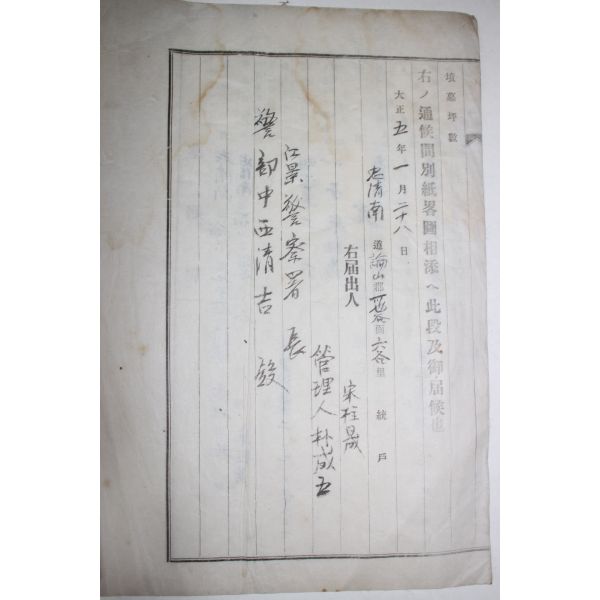 墳墓坪数
右ノ通候間別紙畧圖相添ヘ此段及御届候也
大正五年一月二十八日
忠清南道論山郡 面六谷里 統 戸
右届出人
宋柱晟
管理人朴成五
江景警察署長
警部中西清吉殿